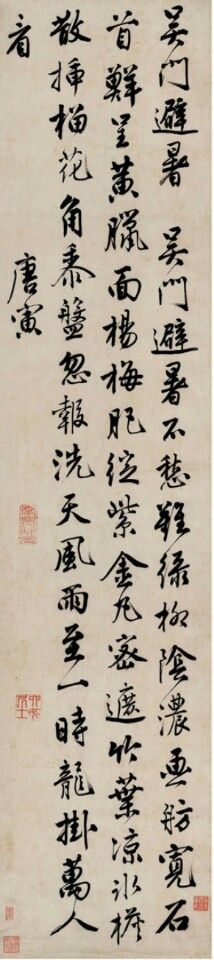 吳門避暑 吳門避暑不愁難綠柳陰濃畫舫寬石
首鮮呈黃臘面楊梅肥綻紫金丸密遮竹葉涼冰
散揷榴花角黍盤忽報洗天風雨至一時龍掛萬人
看
唐寅
六如居士